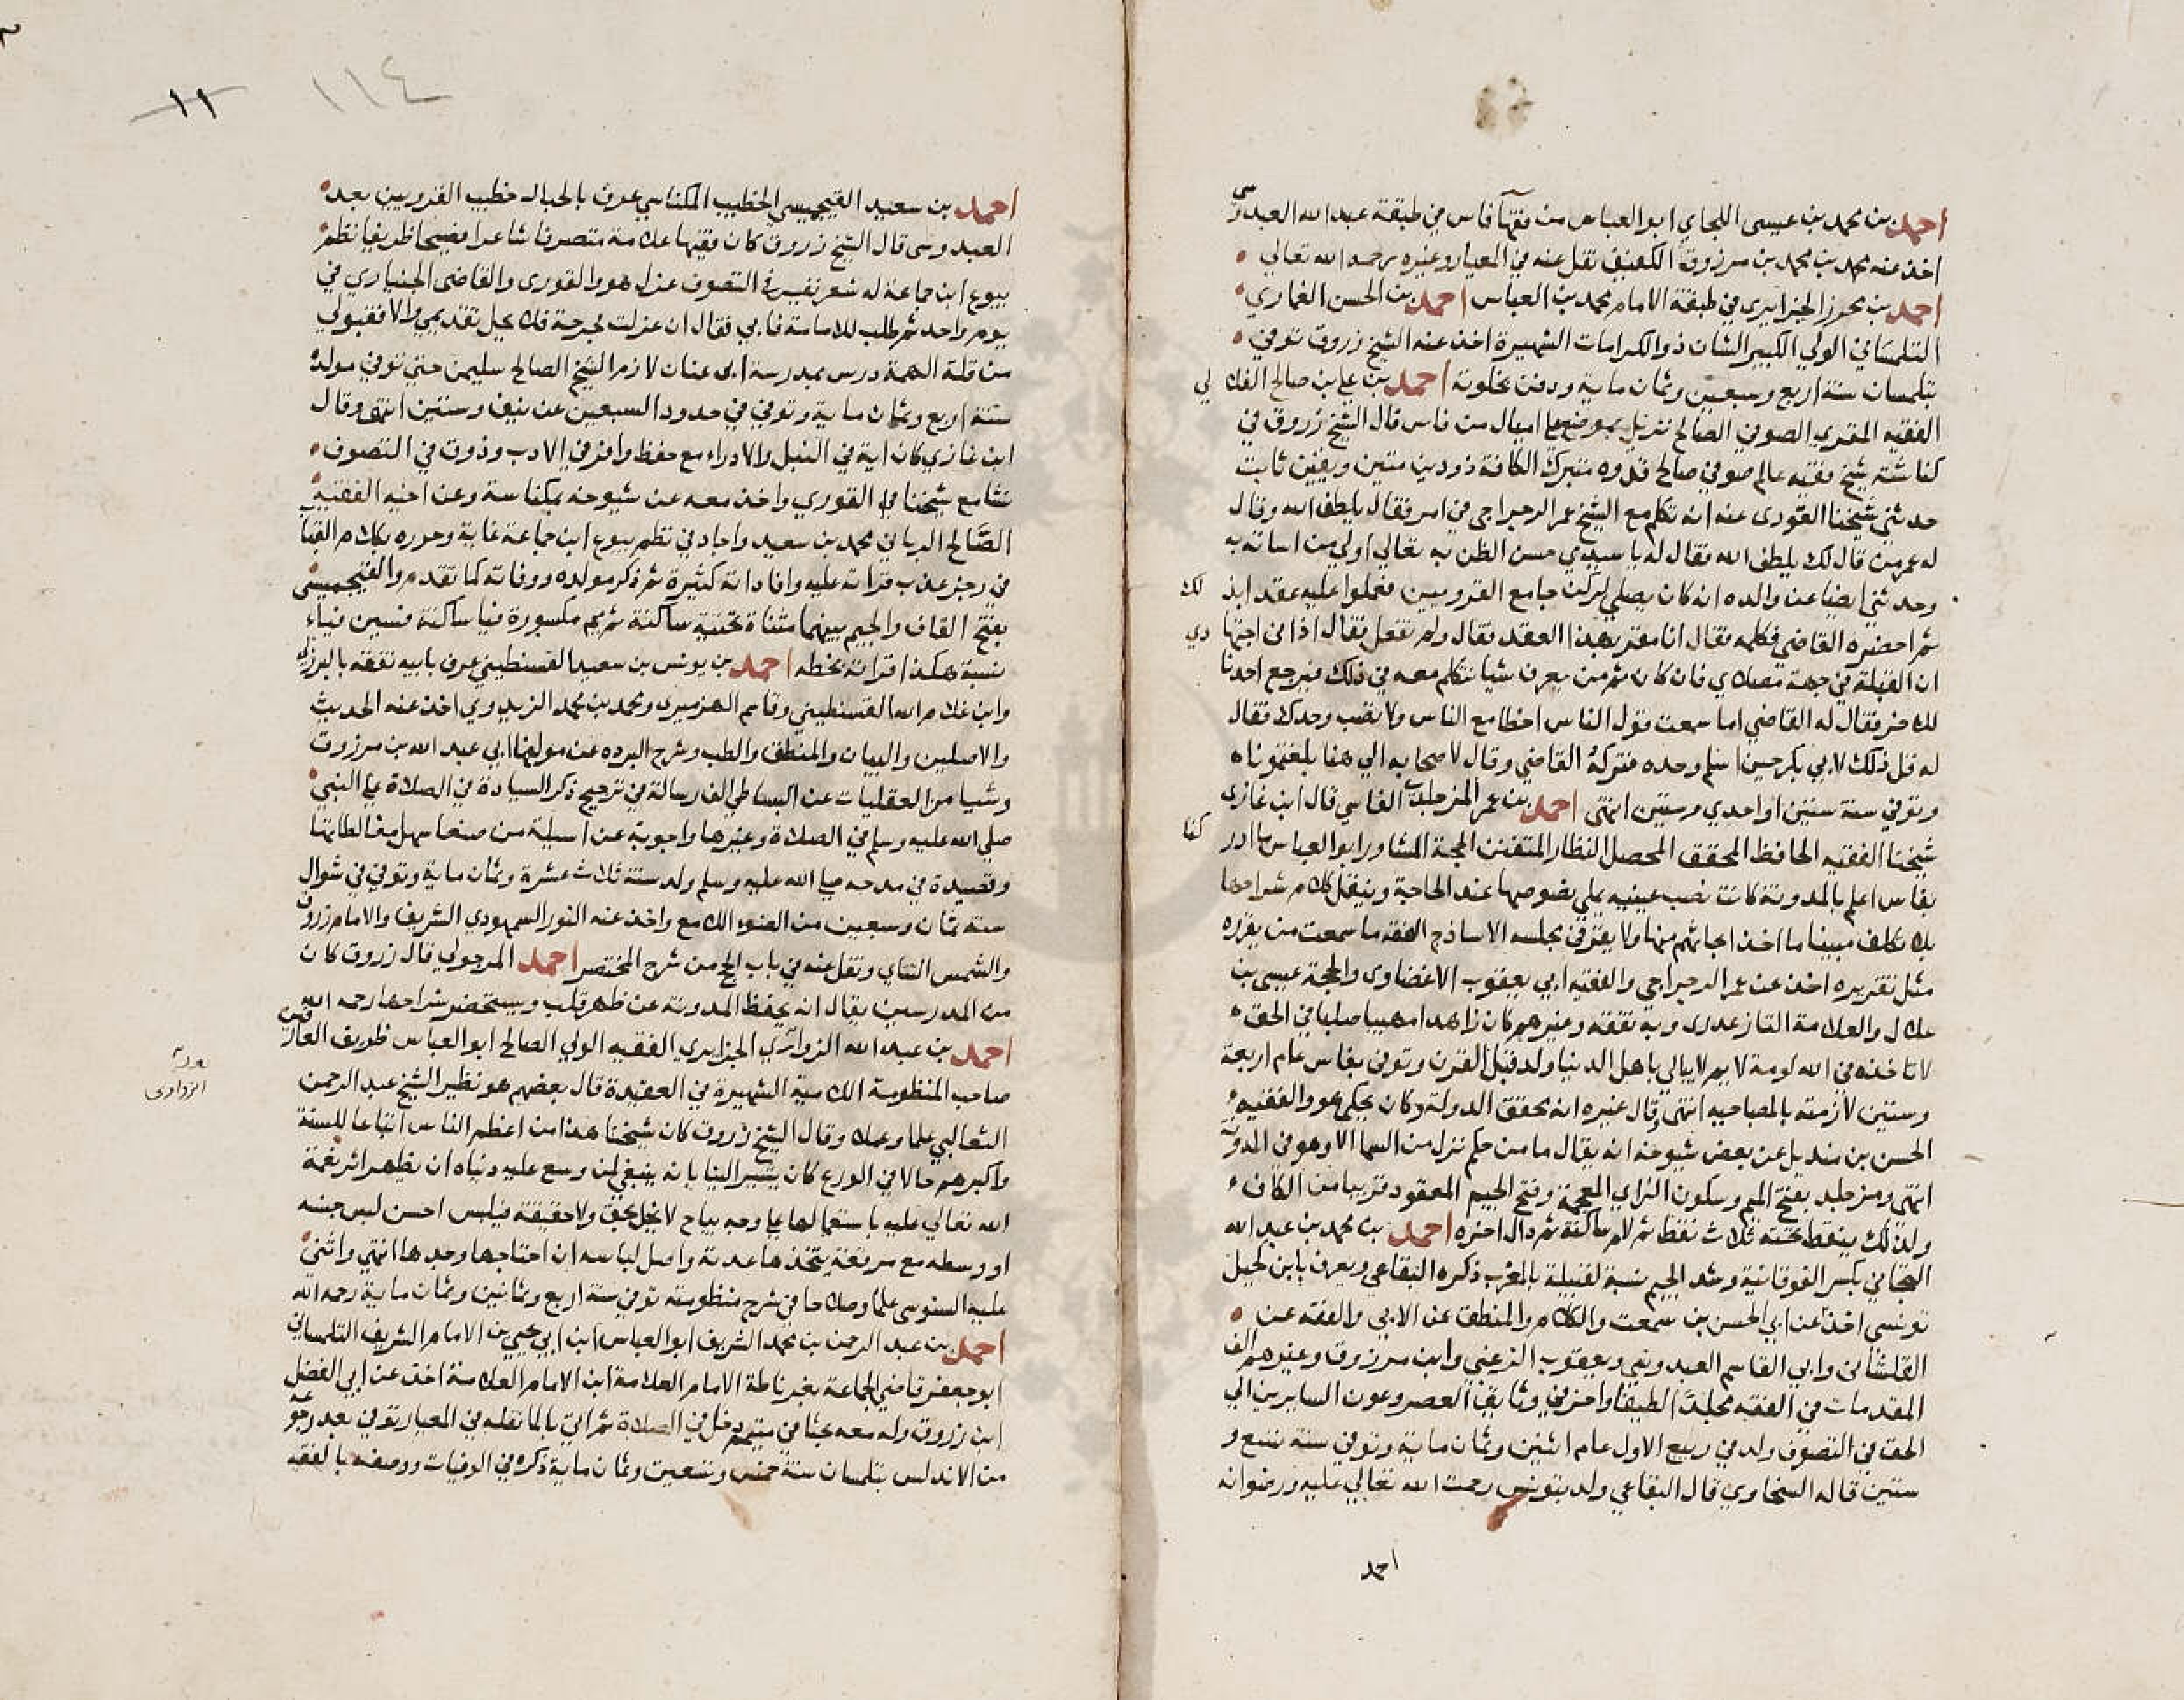 احمد بن محمد بن عيسى اللجاي ابو العباس من فقهآ فاس من طبقة عبد الله العبدوسى
اخذ عنه محمد بن محمد بن مرزوق الكفيف نقل عنه في المعيار وغيره رحمه الله تعالي
احمد بن يحوز الجزايري في طبقة الامام محمد بن العباس احمد بن الحسن الغماري
التلمساني الولي الكبير الشان ذو الكرامات الشهيرة اخذ عنه الشيخ زروق توفي
بتلمسان سنة اربع وسبعين وثمان ماية ودفن بخلوته احمد بن علي بن صالح الفلالي
الفقيه المقري الصوفي الصالح نزيل بموضع علي اميال من فاس قال الشيخ زروق في
كناشته شيخ فقيه عالم صوفي صالح قدوه متبرك الكافة ذو دين متين ويقين ثابت
حدثني شيخنا القورى عنه انه تكلم مع الشيخ عمر الرجراجي في امر فقال يلطف الله وقال
له عمر من قال لك يلطف الله فقال له يا سيدي حسن الظن به تعالي اولي من اساته به
وحدثني ايضا عن والده انه كان يصلي لركن جامع القرويين فعملوا عليه عقد ابذلك
ثم احضره القاضي فكلمه فقال انا مقر بهذا العقد فقال ولم تفعل فقال اذا في اجتهادي
ان القبلة في جهة مصلاي فان كان ثم من يعرف شيا نتكلم معه في ذلك فيرجع احدنا
للاخر فقال له القاضي اما سمعت قول الناس اخطا مع الناس ولا تصب وحدك فقال
له قل ذلك لابي بكر حين اسلم وحده فتركه القاضي وقال لاصحابه الي هنا بلغتموناه
وتوفي سنة ستين او احدي وستين انتهى احمد بن عمر المزجلدي الفاسي قال ابن غازى
شيخنا الفقيه الحافظ المحقق المحصل النظار المتفنن الحجة المشاور ابو العباس ما ادركنا
بفاس اعلم بالمدونة كانت نصب عينيه يملي نصوصها عند الحاجة وينقل كلام شراحها
بلا تكلف مبينا ما اخذ ابحاثهم منها ولا يقرى في مجلسه الا ساذج الفقه ما سمعت من يقرره
مثل تقريره اخذ عن عمر الرجراجي والفقيه ابي يعقوب الاغضاوى والحجة عيسى بن
علال والعلامة التازغدرى وبه تفقه وغيرهم كان زاهدا مهيبا صلبا في الحق
لا تاخذه في الله لومة لايم لا يبالي باهل الدنيا ولد قبل القرن وتوفى بفاس عام اربعة
وستين لازمته بالمصباحيه انتهى وقال غيره انه يحقق الدولة وكان يحكي هو والفقيه
الحسن بن منديل عن بعض شيوخه انه يقال ما من حكم نزل من السما الا وهو في المدونة
انتهى ومزجلد بفتح الميم وسكون الزاي المعجمة وفتح الجيم المعقود قريبا من الكاف
ولذلك ينقط تحته ثلاث نقط ثم لام ساكنة ثم دال اخره احمد بن محمد بن عبد الله
التجاني بكسر الفوقانية وشد الجيم نسبة لقبيلة بالمغرب ذكره البقاعي ويعرف بابن كحيل
تونسي اخذ عن ابي الحسن بن سمعت والكلام والمنطق عن الابي والفقه عن
القلشاني وابي القاسم العبدوسي ويعقوب الزعبي وابن مرزوق وغيرهم الف
المقدمات في الفقه مجلدا لطيفا واخر في وثايق العصر وعون السايرين الي
الحق في التصوف ولد في ربيع الاول عام اثنين وثمان ماية وتوفي سنة تسع و
ستين قاله السخاوي قال البقاعي ولد بتونس رحمت الله تعالي عليه ورضوانه
احمد
١١
١١٤
احمد بن سعيد القيجميسي الخطيب المكناسي عرف بالحباك خطيب القرويين بعد
العبدوسى قال الشيخ زروق كان فقيها علامة متصوفا شاعرا فصيحا ظريفا نظم
بيوع ابن جماعة له شعر نفيس في التصوف عزل هو والقورى والقاضي الجنياري في
يوم واحد ثم طلب للامامة فابي فقال ان عزلت لجرحة فلا يحل تقديمي والا فقبولي
من قلة الهمة درس بمدرسة ابى عنان لازم الشيخ الصالح سليمن حتي توفي مولده
سنة اربع وثمان ماية وتوفي في حدود السبعين عن نيف وستين انتهى وقال
ابن غازي كان اية في النبل والادراك مع حفظ وافر في الادب وذوق في التصوف
نشا مع شيخنا القوري واخذ معه عن شيوخه بمكناسة وعن اخيه الفقيه
الصالح الرباني محمد بن سعيد واجاد في نظم بيوع ابن جماعة غاية وحرره بكلام القباب
في رجز عذب قراته عليه وافاداته كثيرة ثم ذكر مولده ووفاته كما تقدم والقيجميسي
بفتح القاف والجيم بينهما مثناة تحتية ساكنة ثم ميم مكسورة فيا ساكنة فسين فياء
نسبة هكذا قراته بخطه احمد بن يونس بن سعيد القسنطيني عرف بابيه تفقه بالبرزلي
وابن غلام الله القسنطيني وقاسم الهزميرى ومحمد بن محمد الزيدوي اخذ عنه الحديث
والاصلين والبيان والمنطق والطب وشرح البرده عن مولفها ابي عبد الله بن مرزوق
وشيا من العقليات عن البساطي الف رسالة في ترجيح ذكر السيادة في الصلاة علي النبي
صلي الله عليه وسلم في الصلاة وغيرها واجوبة عن اسيلة من صنعا سهل مغالطاتها
وقصيدة في مدحه صلي الله عليه وسلم ولد سنة ثلاث عشرة وثمان ماية وتوفي في شوال
سنة ثمان وسبعين من الضوء اللامع واخذ عنه النور السمهودي الشريف والامام زروق
والشمس التتاي ونقل عنه في باب الحج من شرح المختصر احمد المرجولي قال زروق كان
من المدرسين يقال انه يحفظ المدونة عن ظهر قلب ويستحضر شراحها رحمه الله
احمد بن عبد الله الزواتري الجزايري الفقيه الولي الصالح ابو العباس ظريف العارفين
صاحب المنظومة اللامية الشهيرة في العقيدة قال بعضهم هو نظير الشيخ عبد الرحمن
الثعالبي علما وعملا وقال الشيخ زروق كان شيخنا هذا من اعظم الناس اتباعا للسنة
واكبرهم حالا في الورع كان يشير الينا بانه ينبغي لمن وسع عليه دنياه ان يظهر اثر نعمة
الله تعالي عليه باستعمالها علي وجه يباح لا يخل بحق ولا حقيقة فيلبس احسن لبس جنسه
او وسطه مع مرقعة يتخذها عدة واصل لباسه ان احتاجها وجدها انتهي واثنى
عليه السنوسى علما وصلاحا في شرح منظومته توفي سنة اربع وثمانين وثمان ماية رحمه الله
احمد بن عبد الرحمن بن محمد الشريف ابو العباس ابن ابي يحيي بن الامام الشريف التلمساني
ابو جعفر قاضي الجماعة بغرناطة الامام العلامة ابن الامام العلامة اخذ عن ابي الفضل
ابن زروق وله معه بحثا في متيمم دخل في الصلاة ثم اتي بالما نقله في المعيار توفي بعد رجوعه
من الاندلس بتلمسان سنة خمس وتسعين وثمان ماية ذكره في الوفيات ووصفه بالفقيه